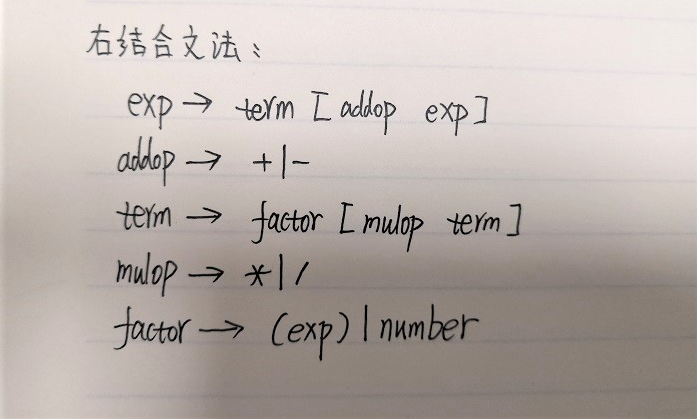 右结合文法：
exp → term [addop exp]
addop → +|-
term → factor [mulop term]
mulop → *|/
factor → (exp)|number